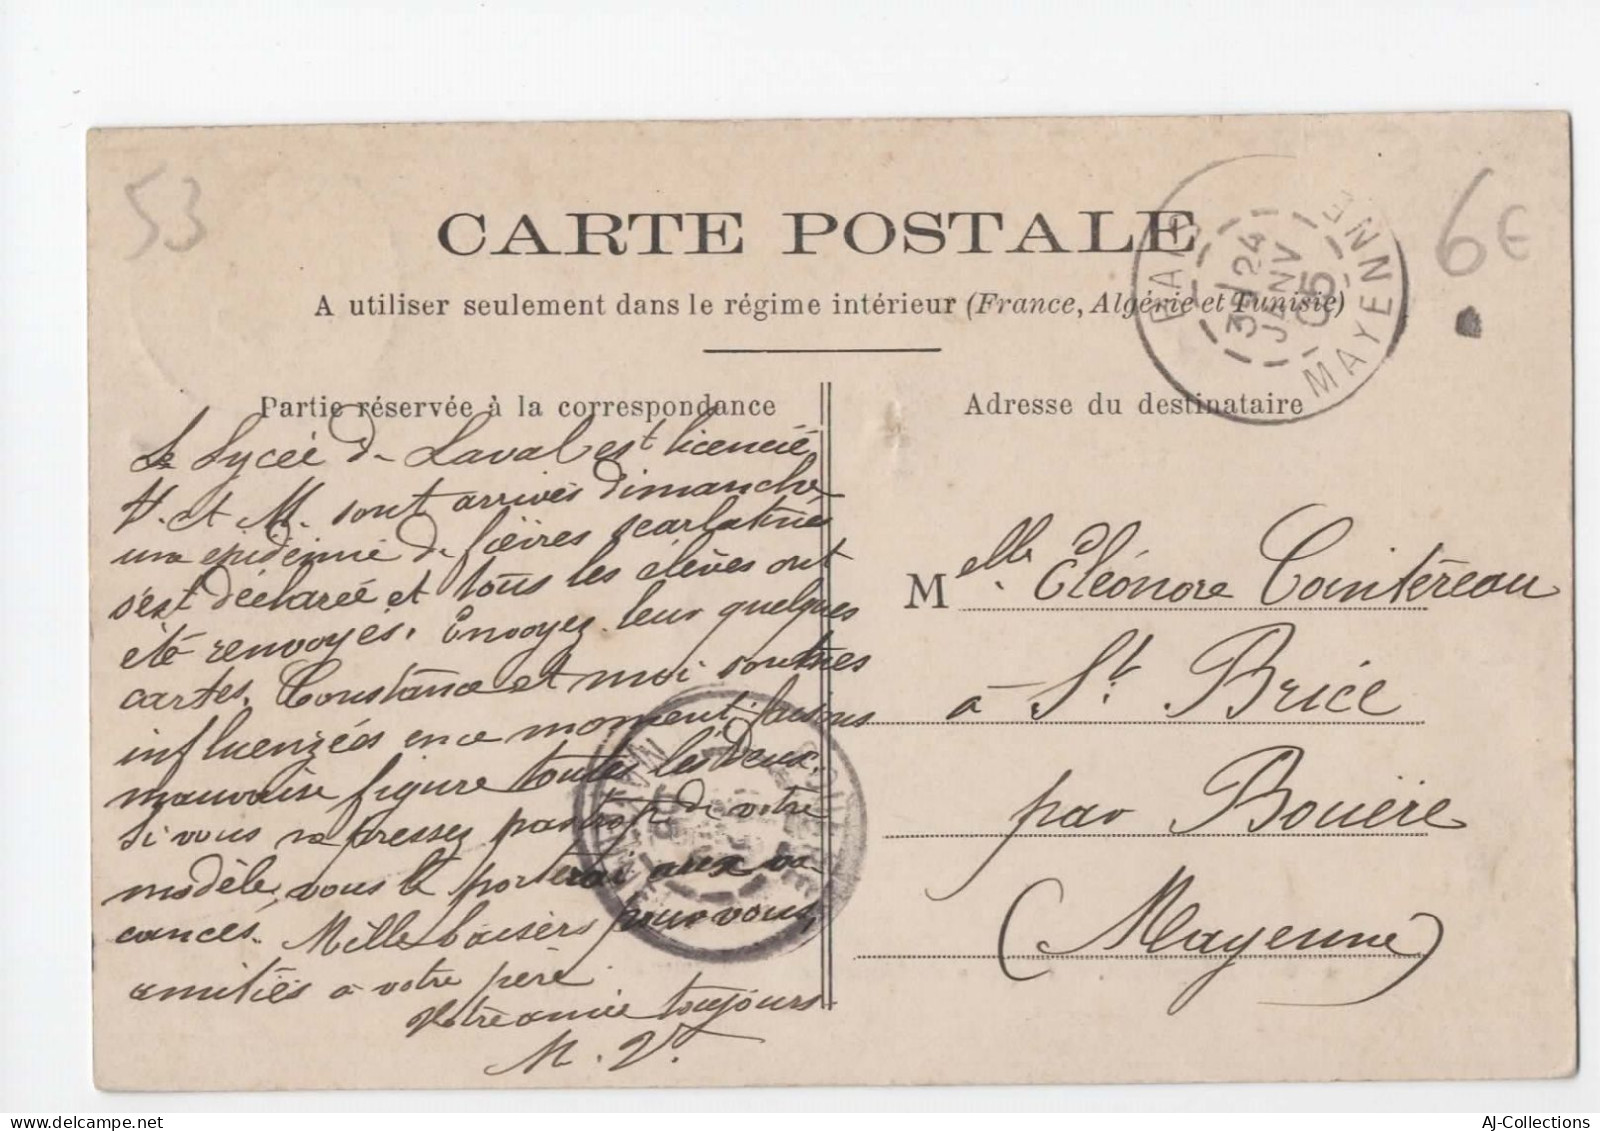 53
CARTE POSTALE
6€
A utiliser seulement dans le régime intérieur (France, Algérie et Tunisie)
3E 24
JANV
05
MAYENNE
Partie réservée à la correspondance
Le Lycée de Laval est licencié
V. et M. sont arrivés dimanche
une épidémie de fièvres scarlatines
s'est déclarée et tous les élèves ont
été renvoyés. Envoyez leur quelques
cartes. Constance et moi soutnes
influenzées en ce moment faisons
mauvaise figure toutes les deux.
Si vous ne pressez pas trop de votre
modèle, vous le porterai aux va-
cances. Mille baisers pour vous,
amitiés à votre père
Votre amie toujours
M. V.
Adresse du destinataire
Melle Eléonore Cointereau
à St. Brice
par Bouère
(Mayenne)
AJ-Collections